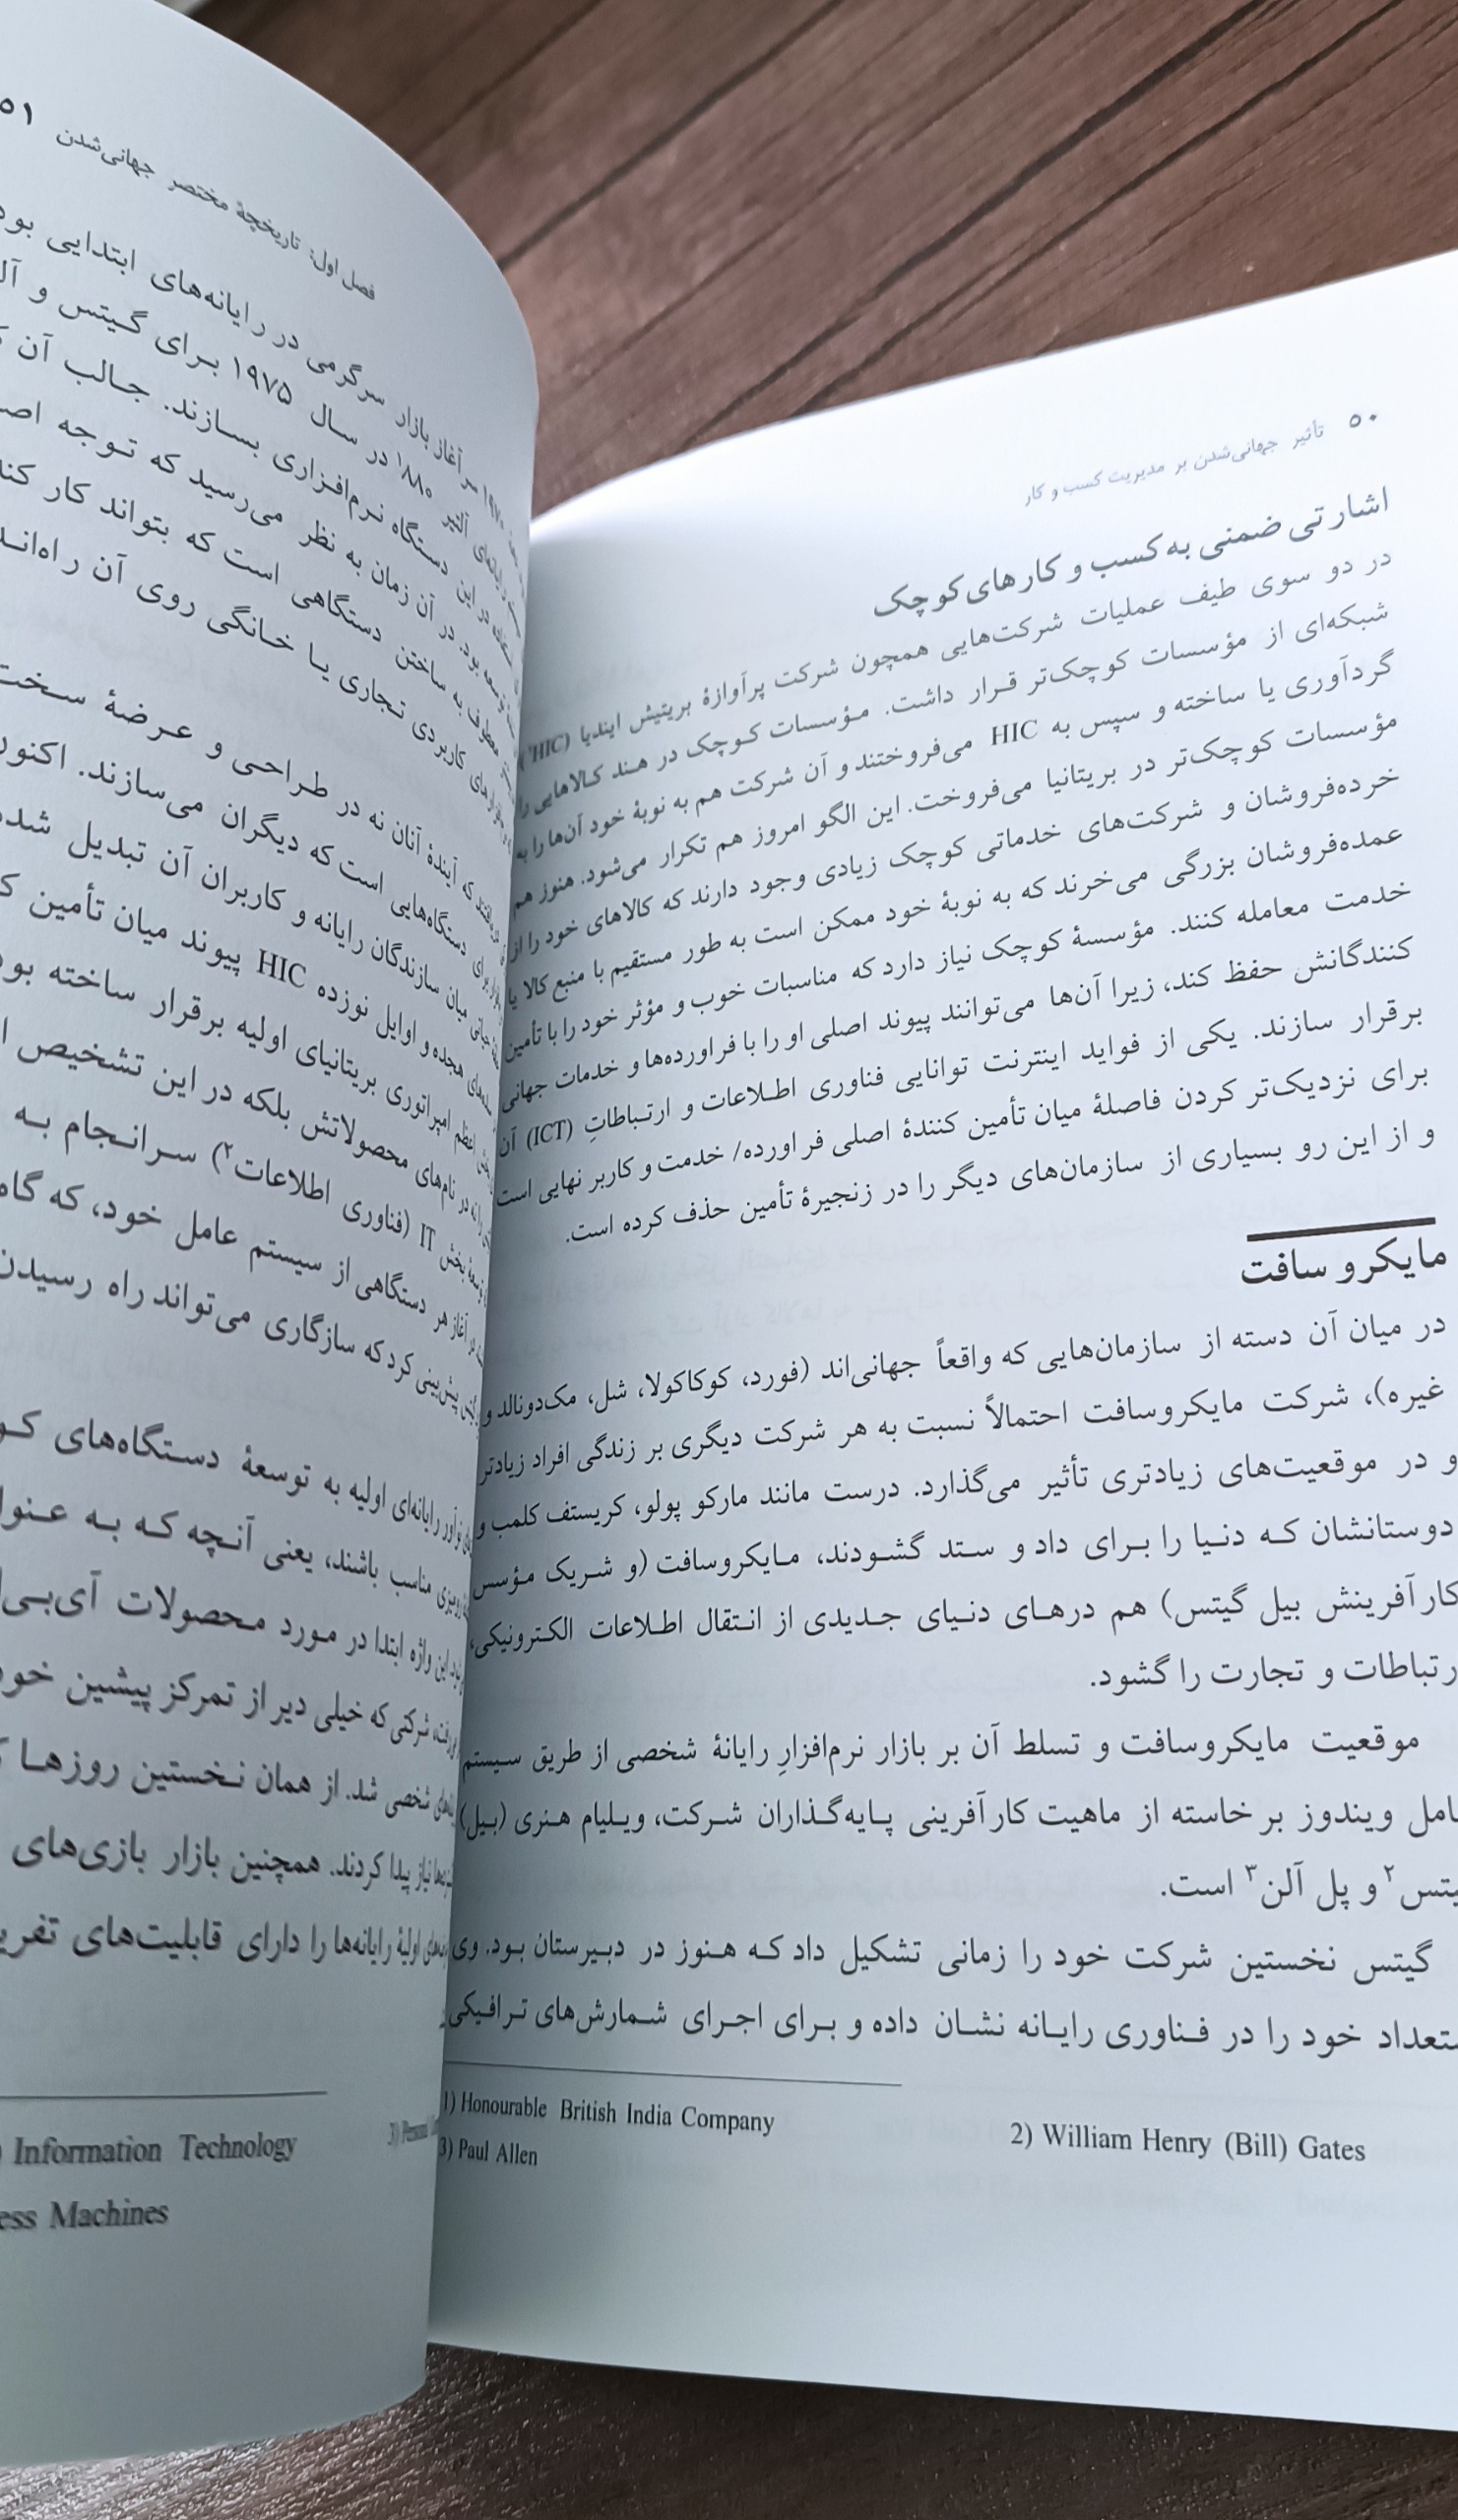 ۵۰ تأثیر جهانی‌شدن بر مدیریت کسب و کار
اشارتی ضمنی به کسب و کارهای کوچک
در دو سوی طیف عملیات شرکت‌هایی همچون شرکت پرآوازهٔ بریتیش ایندیا (HIC¹)
شبکه‌ای از مؤسسات کوچک‌تر قرار داشت. مؤسسات کوچک در هند کالاهایی را
گردآوری یا ساخته و سپس به HIC می‌فروختند و آن شرکت هم به نوبهٔ خود آن‌ها را به
مؤسسات کوچک‌تر در بریتانیا می‌فروخت. این الگو امروز هم تکرار می‌شود. هنوز هم
خرده‌فروشان و شرکت‌های خدماتی کوچک زیادی وجود دارند که کالاهای خود را از
عمده‌فروشان بزرگی می‌خرند که به نوبهٔ خود ممکن است به طور مستقیم با منبع کالا یا
خدمت معامله کنند. مؤسسهٔ کوچک نیاز دارد که مناسبات خوب و مؤثر خود را با تأمین
کنندگانش حفظ کند، زیرا آن‌ها می‌توانند پیوند اصلی او را با فراورده‌ها و خدمات جهانی
برقرار سازند. یکی از فواید اینترنت توانایی فناوری اطلاعات و ارتباطاتِ (ICT) آن
برای نزدیک‌تر کردن فاصلهٔ میان تأمین کنندهٔ اصلی فراورده/ خدمت و کاربر نهایی است
و از این رو بسیاری از سازمان‌های دیگر را در زنجیرهٔ تأمین حذف کرده است.
مایکروسافت
در میان آن دسته از سازمان‌هایی که واقعاً جهانی‌اند (فورد، کوکاکولا، شل، مک‌دونالد و
غیره)، شرکت مایکروسافت احتمالاً نسبت به هر شرکت دیگری بر زندگی افراد زیادتر
و در موقعیت‌های زیادتری تأثیر می‌گذارد. درست مانند مارکو پولو، کریستف کلمب و
دوستانشان که دنیا را برای داد و ستد گشودند، مایکروسافت (و شریک مؤسس
کارآفرینش بیل گیتس) هم درهای دنیای جدیدی از انتقال اطلاعات الکترونیکی،
رتباطات و تجارت را گشود.
موقعیت مایکروسافت و تسلط آن بر بازار نرم‌افزارِ رایانهٔ شخصی از طریق سیستم
امل ویندوز برخاسته از ماهیت کارآفرینی پایه‌گذاران شرکت، ویلیام هنری (بیل)
یتس² و پل آلن³ است.
گیتس نخستین شرکت خود را زمانی تشکیل داد که هنوز در دبیرستان بود. وی
ستعداد خود را در فناوری رایانه نشان داده و برای اجرای شمارش‌های ترافیکی
1) Honourable British India Company
2) William Henry (Bill) Gates
3) Paul Allen
فصل اول: تاریخچهٔ مختصر جهانی‌شدن ۵۱
سرآغاز بازار سرگرمی در رایانه‌های ابتدایی بود
آلتیر ۸۸۰ در سال ۱۹۷۵ برای گیتس و آل
در این دستگاه نرم‌افزاری بسازند. جالب آن ک
بود. در آن زمان به نظر می‌رسید که توجه اص
معطوف به ساختن دستگاهی است که بتواند کار کند
کاربردی تجاری یا خانگی روی آن راه‌اند
که آیندهٔ آنان نه در طراحی و عرضهٔ سخت
برای دستگاه‌هایی است که دیگران می‌سازند. اکنون
میان سازندگان رایانه و کاربران آن تبدیل شده
هجده و اوایل نوزده HIC پیوند میان تأمین ک
اعظم امپراتوری بریتانیای اولیه برقرار ساخته بود
را نه در نام‌های محصولاتش بلکه در این تشخیص ا
توسعهٔ بخش IT (فناوری اطلاعات²) سرانجام به
آغاز هر دستگاهی از سیستم عامل خود، که گاه
پیش‌بینی کرد که سازگاری می‌تواند راه رسیدن
نوآور رایانه‌ای اولیه به توسعهٔ دستگاه‌های کو
رومیزی مناسب باشند، یعنی آنچه که به عنوا
این واژه ابتدا در مورد محصولات آی‌بی‌
شرکتی که خیلی دیر از تمرکز پیشین خود
شخصی شد. از همان نخستین روزها ک
نیاز پیدا کردند. همچنین بازار بازی‌های
اولیهٔ رایانه‌ها را دارای قابلیت‌های تفری
) Information Technology
ess Machines